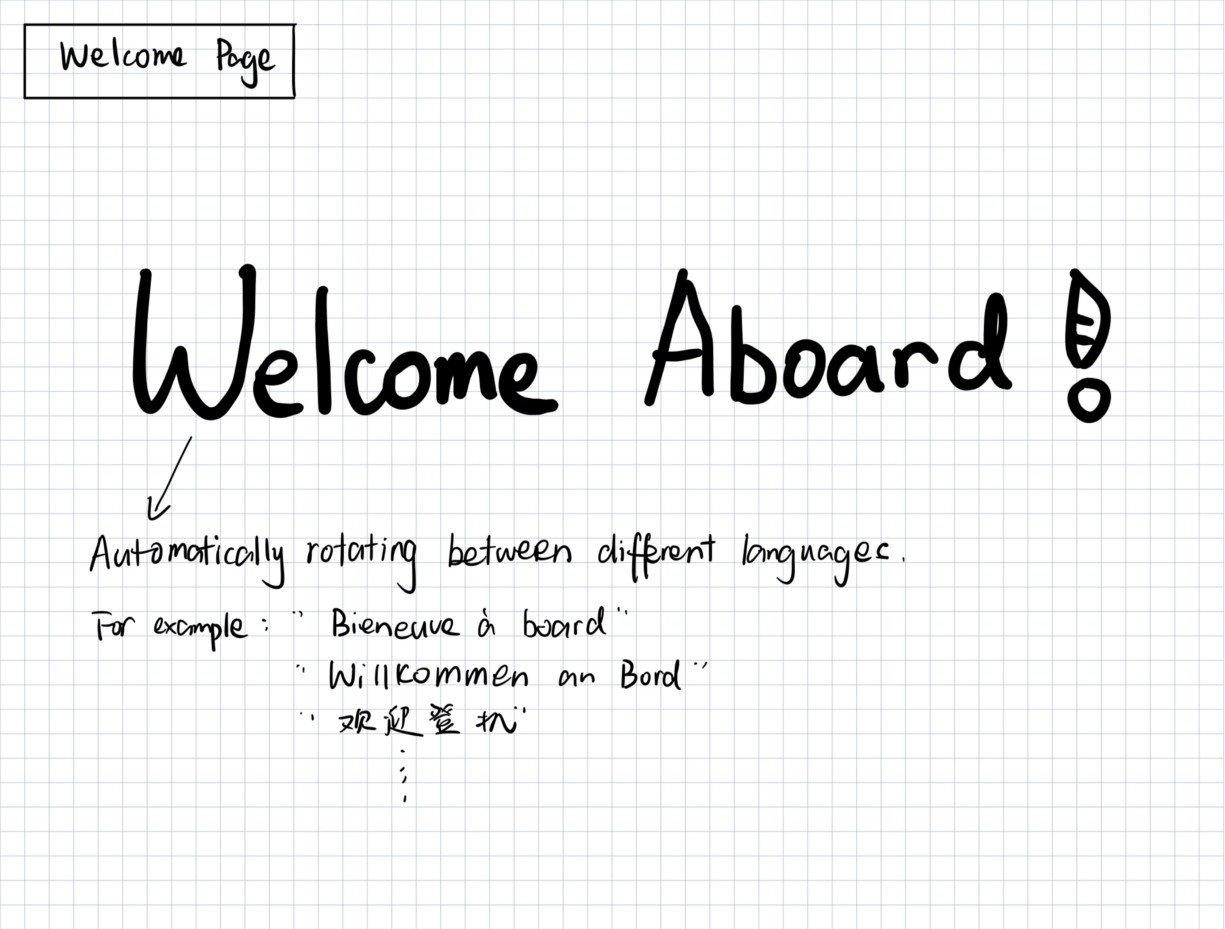 Welcome Page
Welcome Aboard!
Automatically rotating between different languages.
For example: "Bieneuve à board"
"Willkommen an Bord"
"欢迎登机"